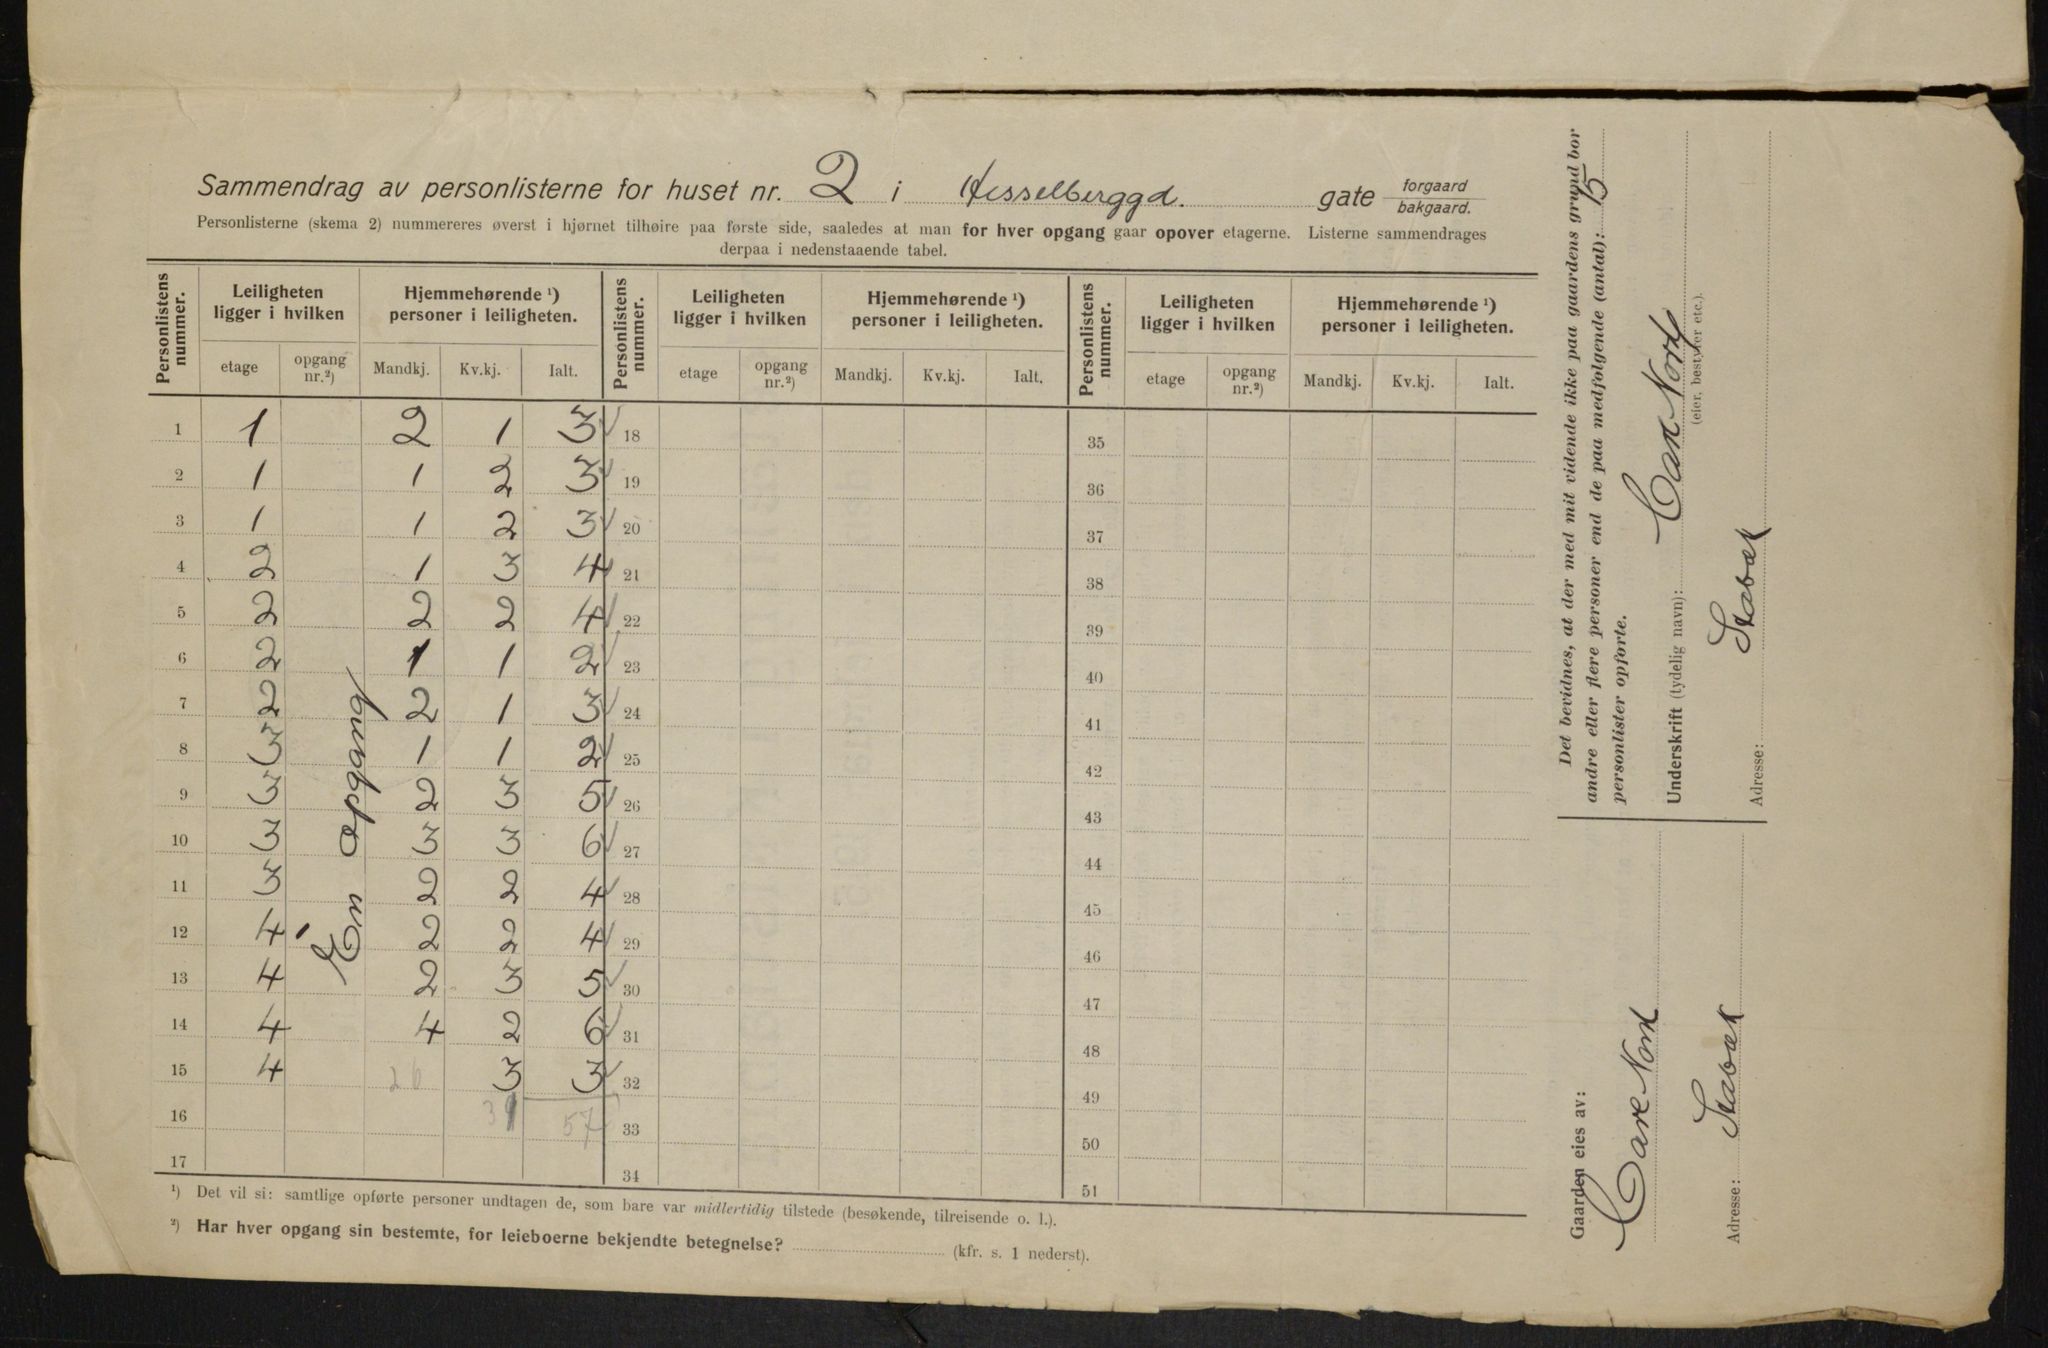 Sammendrag av personlisterne for huset nr. 2 i Hesselberggd. gate forgaard bakgaard.
Personlisterne (skema 2) nummereres øverst i hjørnet tilhøire paa første side, saaledes at man for hver opgang gaar opover etagerne. Listerne sammendrages
derpaa i nedenstaaende tabel.
Personlistens nummer. Leiligheten ligger i hvilken Hjemmehørende ¹) personer i leiligheten. Personlistens nummer. Leiligheten ligger i hvilken Hjemmehørende ¹) personer i leiligheten. Personlistens nummer. Leiligheten ligger i hvilken Hjemmehørende ¹) personer i leiligheten.
etage opgang nr.²) Mandkj. Kv.kj. Ialt. etage opgang nr.²) Mandkj. Kv.kj. Ialt. etage opgang nr.²) Mandkj. Kv.kj. Ialt.
1 1 2 1 3 ✓ 18 35
2 1 1 2 3 ✓ 19 36
3 1 1 2 3 ✓ 20 37
4 2 1 3 4 ✓ 21 38
5 2 2 2 4 ✓ 22 39
6 2 1 1 2 ✓ 23 40
7 2 2 1 3 ✓ 24 41
8 3 1 1 2 ✓ 25 42
9 3 2 3 5 ✓ 26 43
10 3 3 3 6 ✓ 27 44
11 3 2 2 4 ✓ 28 45
12 4 2 2 4 ✓ 29 46
13 4 2 3 5 ✓ 30 47
14 4 4 2 6 ✓ 31 48
15 4 26 3 3 ✓ 32 49
16 31 57 33 50
17 34 51
Én opgang
¹) Det vil si: samtlige opførte personer undtagen de, som bare var midlertidig tilstede (besøkende, tilreisende o. l.).
²) Har hver opgang sin bestemte, for leieboerne bekjendte betegnelse? (kfr. s. 1 nederst).
Det bevidnes, at der med mit vidende ikke paa gaardens grund bor
andre eller flere personer end de paa medfolgende (antal): 15
personlister opforte.
Underskrift (tydelig navn): Carl Nork
(eier, bestyrer etc.).
Adresse: Stabæk
Gaarden eies av:
Carl Nork
Adresse: Stabæk